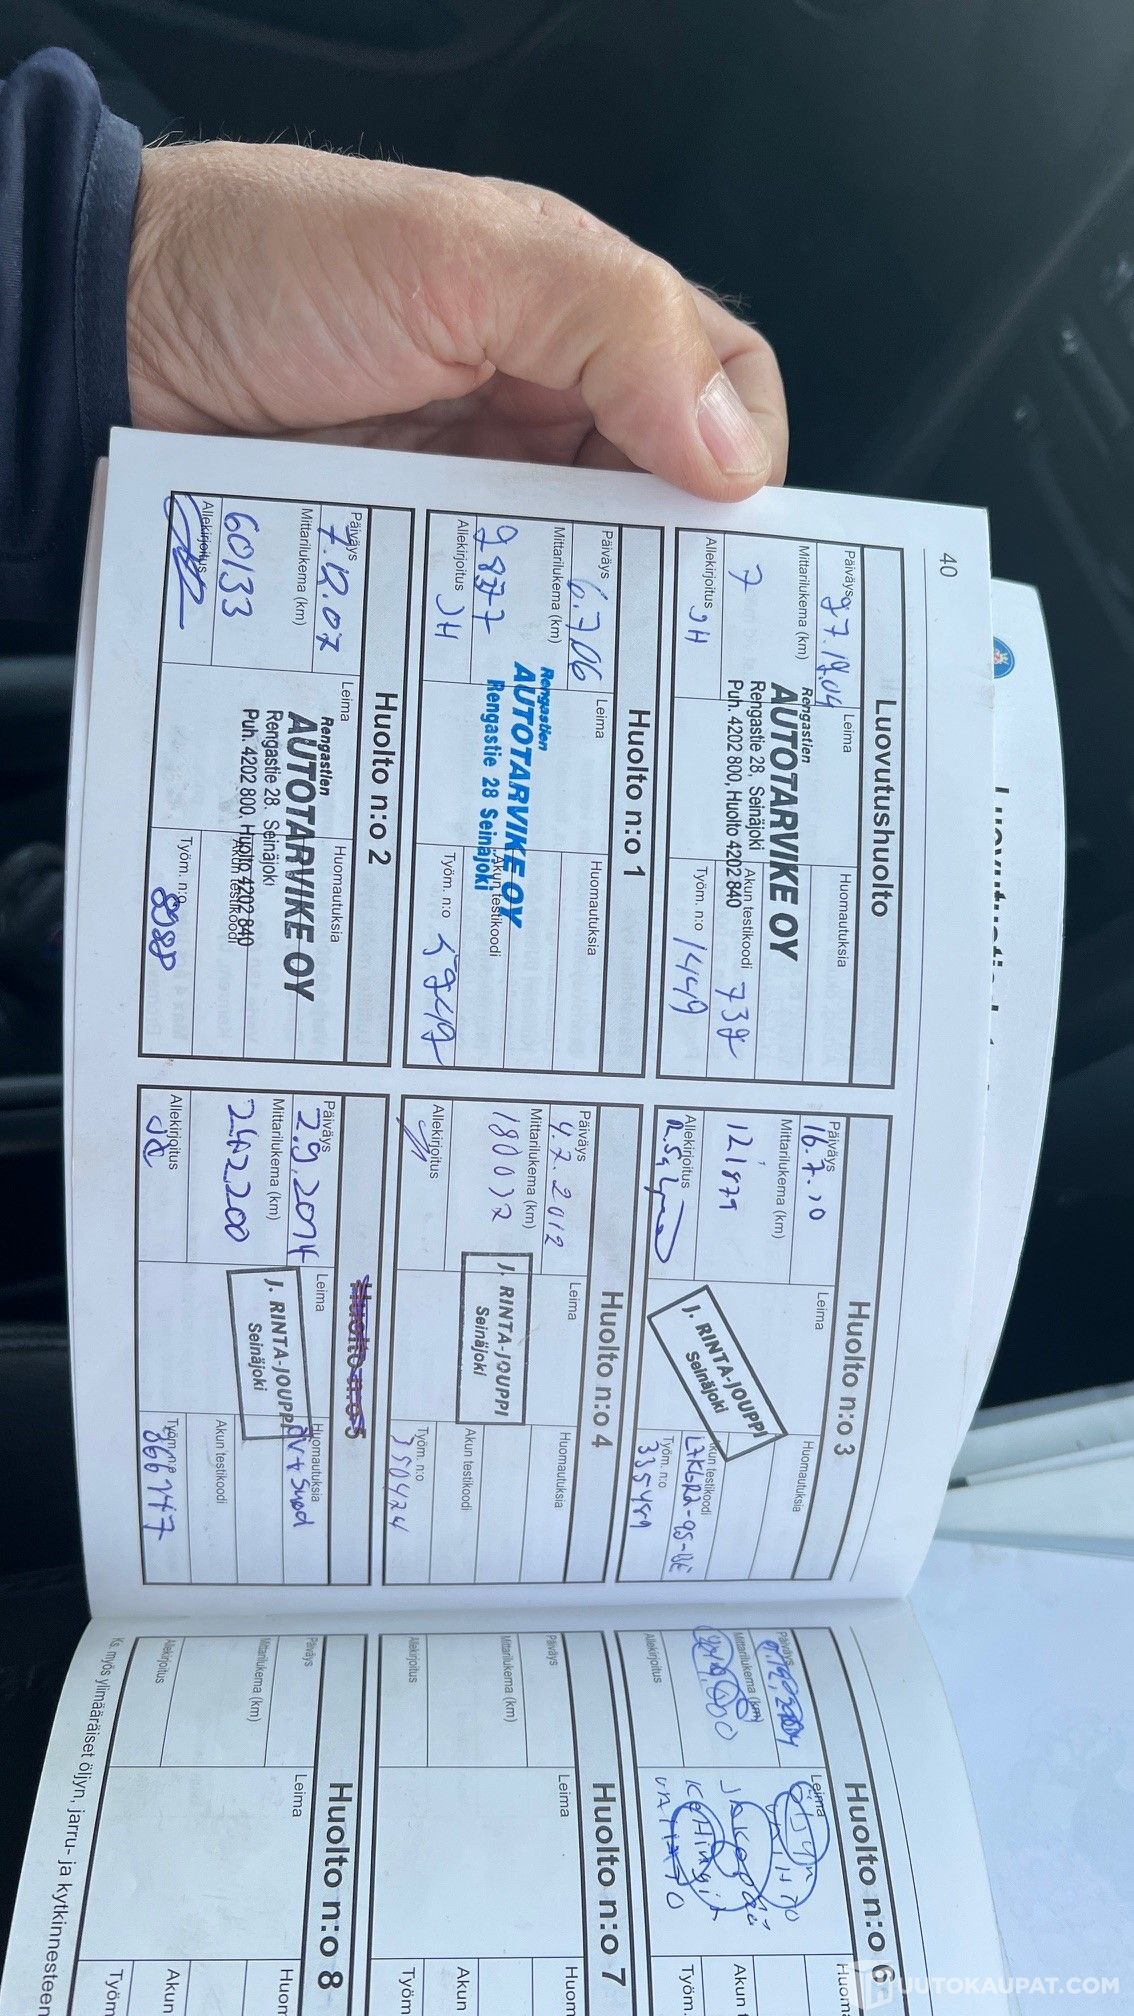 40
Luovutushuolto
Päiväys
Leima
Huomautuksia
Mittarilukema (km)
7
Rengastien
AUTOTARVIKE OY
Rengastie 28, Seinäjoki
Puh. 4202 800, Huolto 4202 840
Akun testikoodi 732
Allekirjoitus JH
Työm. n:o 1449
Huolto n:o 1
Päiväys 6.7.06
Leima
Huomautuksia
Mittarilukema (km)
Rengastien
AUTOTARVIKE OY
Rengastie 28 Seinäjoki
Akun testikoodi
Allekirjoitus JH
Työm. n:o
Huolto n:o 2
Päiväys 7.12.07
Leima
Huomautuksia
Mittarilukema (km)
60133
Rengastien
AUTOTARVIKE OY
Rengastie 28. Seinäjoki
Puh. 4202 800, Huolto 4202 840
Akun testikoodi
Allekirjoitus
Työm. n:o
Huolto n:o 3
Päiväys 16.7.10
Leima
Huomautuksia
Mittarilukema (km)
121879
J. RINTA-JOUPPI
Seinäjoki
Akun testikoodi
Allekirjoitus
Työm. n:o 335489
Huolto n:o 4
Päiväys 4.7.2012
Leima
Huomautuksia
Mittarilukema (km)
180072
J. RINTA-JOUPPI
Seinäjoki
Akun testikoodi
Allekirjoitus
Työm. n:o 350424
Huolto n:o 5
Päiväys 2.9.2014
Leima
Huomautuksia
Mittarilukema (km)
242200
J. RINTA-JOUPPI
Seinäjoki
Akun testikoodi
Allekirjoitus
Työm. n:o
Huolto n:o 6
Päiväys
Leima
Huoma
Mittarilukema (km)
Akun t
Allekirjoitus
Työm.
Huolto n:o 7
Päiväys
Leima
Huom
Mittarilukema (km)
Akun
Allekirjoitus
Työm
Huolto n:o 8
Päiväys
Leima
Huom
Mittarilukema (km)
Akun
Allekirjoitus
Työm
Ks. myös ylimääräiset öljyn, jarru- ja kytkinnesteen
HUUTOKAUPAT.COM